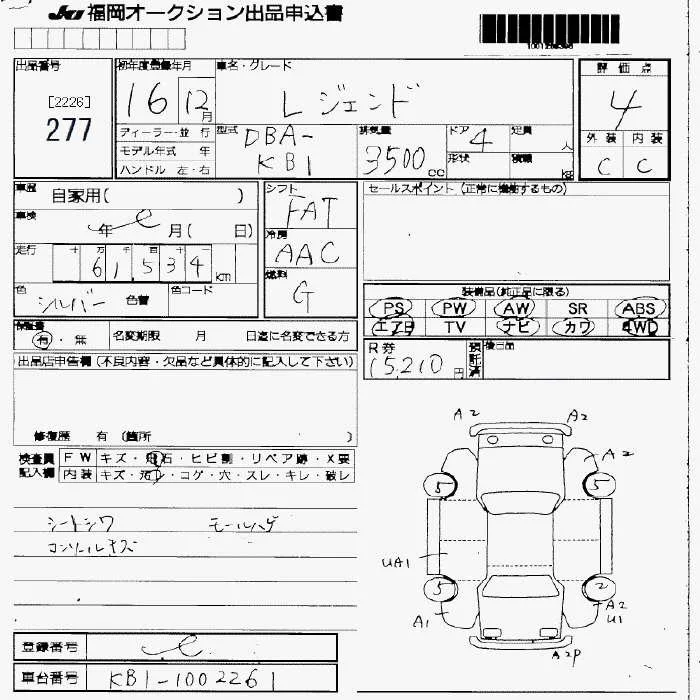 JU 福岡オークション出品申込書
出品番号
[2226]
277
初年度登録年月
16 12月
車名・グレード
レジェンド
評価点
4
外装 内装
C C
ディーラー・並行
モデル年式 年
ハンドル 左・右
型式
DBA-
KB1
排気量
3500cc
ドア 4
形状
定員 人
積載 kg
車歴
自家用( )
車検
年 月( 日)
走行
十 万 千 百 十
61,534 km
色
シルバー 色替
色コード
シフト
FAT
冷房
AAC
燃料
G
セールスポイント (正常に機能するもの)
装備品(純正品に限る)
PS PW AW SR ABS
エアB TV ナビ カワ 4WD
R券
15,210円
預託済
後日品
保証書
有・無
名変期限 月 日迄に名変できる方
出品店申告欄 (不良内容・欠品など具体的に記入して下さい)
修復歴 有 (箇所 )
検査員記入欄
FW キズ・飛石・ヒビ割・リペア跡・X要
内装 キズ・汚れ・コゲ・穴・スレ・キレ・破レ
シートシワ モールハゲ
コンソールキズ
A2 A2
A2
5 5
UA1
5 2
A1
A2
U1
A2P
登録番号
車台番号
KB1-1002261